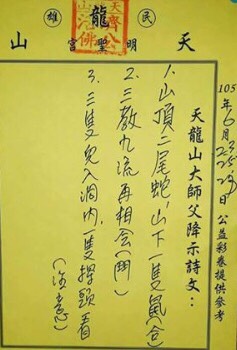 民 雄
天 龍 山
明聖宮
天龍山大師父降示詩文：
105年6月23、25、29日 公益彩卷提供參考
1、山頂二尾蛇、山下一隻鼠(合)
2、三教九流再相會(開)
3、三隻兔入洞內、一隻探頭看
(注意)